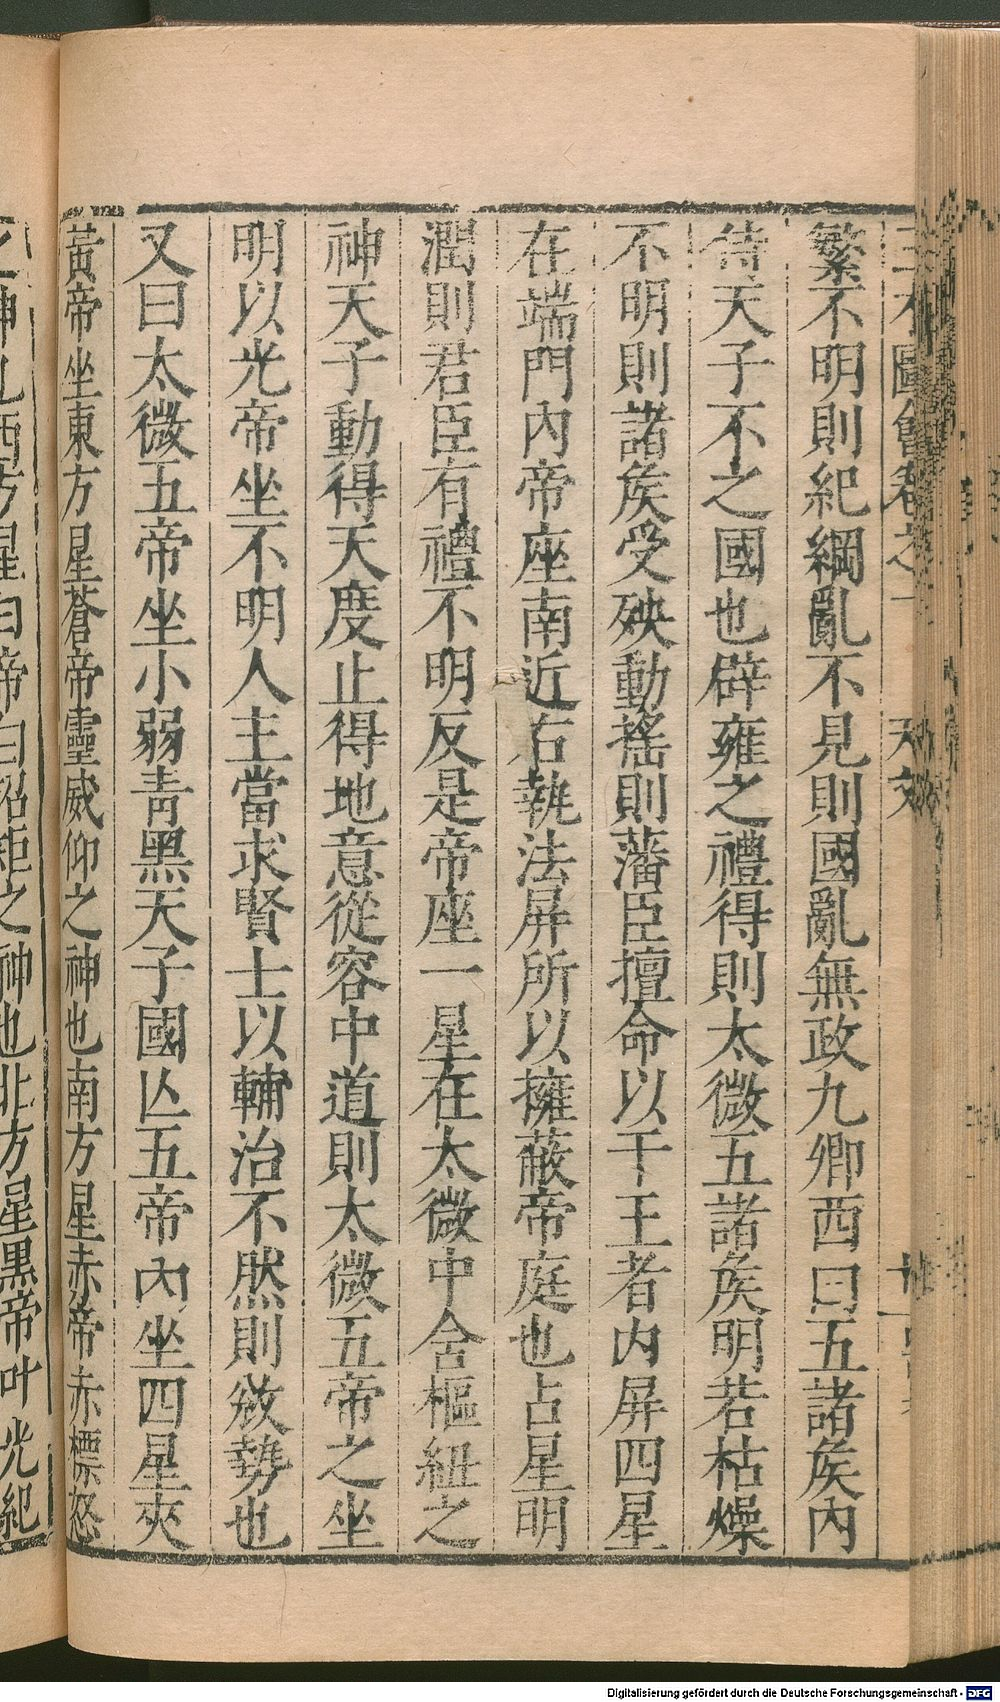 三才圖會卷之一 天文
繁不明則紀綱亂不見則國亂無政九卿西曰五諸矦內
侍天子不之國也辟雍之禮得則太微五諸矦明若枯燥
不明則諸矦受殃動搖則藩臣擅命以干王者內屏四星
在端門內帝座南近右執法屏所以擁蔽帝庭也占星明
潤則君臣有禮不明反是帝座一星在太微中含樞紐之
神天子動得天度止得地意從容中道則太微五帝之坐
明以光帝坐不明人主當求賢士以輔治不然則敓勢也
又曰太微五帝坐小弱青黑天子國亾五帝內坐四星夾
黃帝坐東方星蒼帝靈威仰之神也南方星赤帝赤熛怒
之神也西方星白帝白招矩之神也北方星黑帝叶光紀
Digitalisierung gefördert durch die Deutsche Forschungsgemeinschaft - DFG